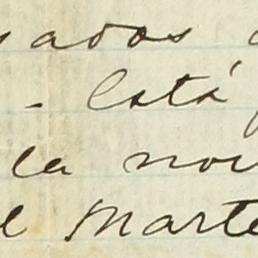 sados
- Está
la nov
el Marte